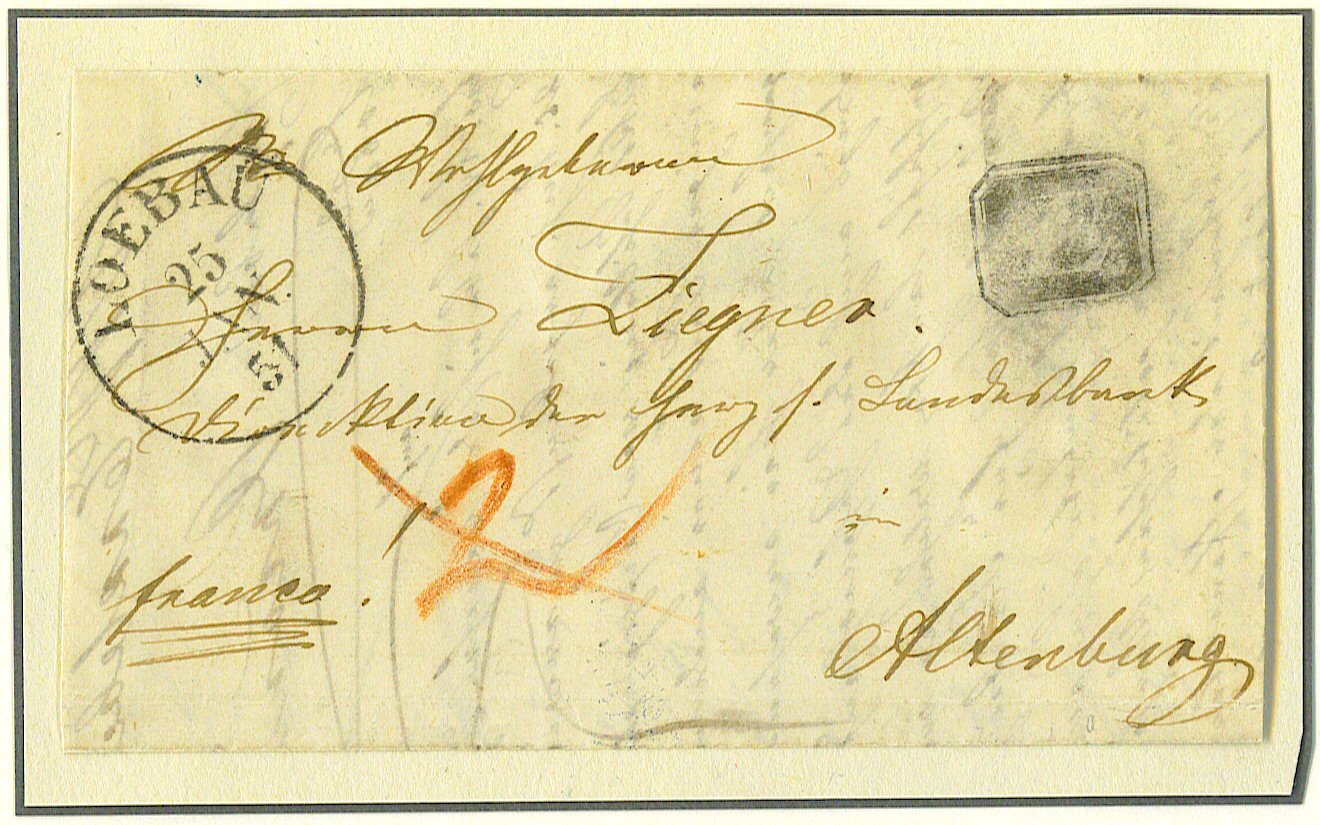 Sr Wohlgeboren
LOEBAU
25
JAN
51
Herrn Ziegner.
der Herz. s. Landesbank
in
2
franco.
Altenburg